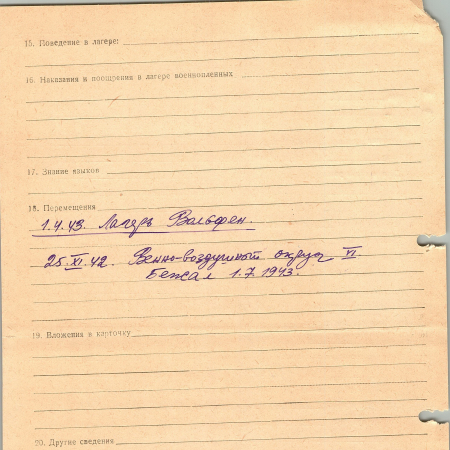 15. Поведение в лагере:
16. Наказания и поощрения в лагере военнопленных
17. Знание языков
18. Перемещения
1.4.43. Лагерь Вольфен.
25.XI.42. Венно-воздушный округ VI
Бежал 1.7.1943.
19. Вложения в карточку
20. Другие сведения